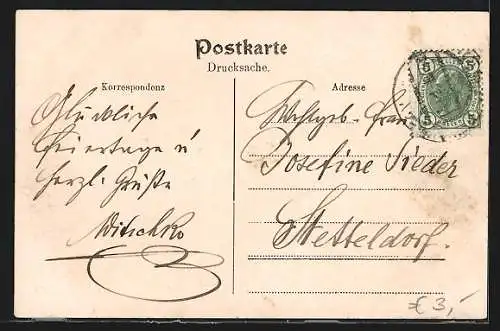 Postkarte
Drucksache.
Korrespondenz
Adresse
Glückliche
Feiertage u
herzl. Grüße
Witschko
Wohlgeb. Frau
Josefine Sieder
Stetteldorf.
5 5
5 5
€ 3,-